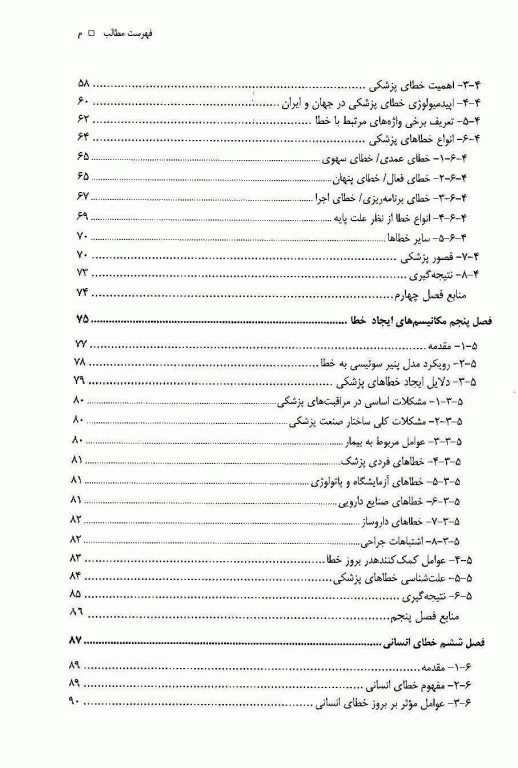 فهرست مطالب □ م
۳-۴- اهمیت خطای پزشکی ........ ۵۸
۴-۴- اپیدمیولوژی خطای پزشکی در جهان و ایران ........ ۶۰
۵-۴- تعریف برخی واژه‌های مرتبط با خطا ........ ۶۲
۶-۴- انواع خطاهای پزشکی ........ ۶۴
۱-۶-۴- خطای عمدی/ خطای سهوی ........ ۶۵
۲-۶-۴- خطای فعال/ خطای پنهان ........ ۶۵
۳-۶-۴- خطای برنامه‌ریزی/ خطای اجرا ........ ۶۷
۴-۶-۴- انواع خطا از نظر علت پایه ........ ۶۹
۵-۶-۴- سایر خطاها ........ ۷۰
۷-۴- قصور پزشکی ........ ۷۰
۸-۴- نتیجه‌گیری ........ ۷۳
منابع فصل چهارم ........ ۷۴
فصل پنجم مکانیسم‌های ایجاد خطا ........ ۷۵
۱-۵- مقدمه ........ ۷۷
۲-۵- رویکرد مدل پنیر سوئیسی به خطا ........ ۷۸
۳-۵- دلایل ایجاد خطاهای پزشکی ........ ۷۹
۱-۳-۵- مشکلات اساسی در مراقبت‌های پزشکی ........ ۸۰
۲-۳-۵- مشکلات کلی ساختار صنعت پزشکی ........ ۸۰
۳-۳-۵- عوامل مربوط به بیمار ........ ۸۰
۴-۳-۵- خطاهای فردی پزشک ........ ۸۱
۵-۳-۵- خطاهای آزمایشگاه و پاتولوژی ........ ۸۱
۶-۳-۵- خطاهای صنایع دارویی ........ ۸۱
۷-۳-۵- خطاهای داروساز ........ ۸۲
۸-۳-۵- اشتباهات جراحی ........ ۸۲
۴-۵- عوامل کمک‌کنندهدر بروز خطا ........ ۸۳
۵-۵- علت‌شناسی خطاهای پزشکی ........ ۸۴
۶-۵- نتیجه‌گیری ........ ۸۵
منابع فصل پنجم ........ ۸۶
فصل ششم خطای انسانی ........ ۸۷
۱-۶- مقدمه ........ ۸۹
۲-۶- مفهوم خطای انسانی ........ ۸۹
۳-۶- عوامل مؤثر بر بروز خطای انسانی ........ ۹۰